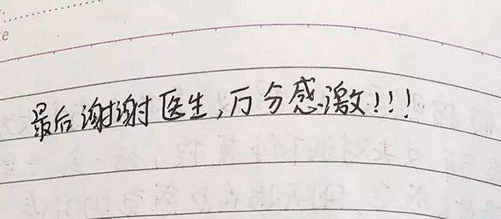 最后谢谢医生,万分感激!!!